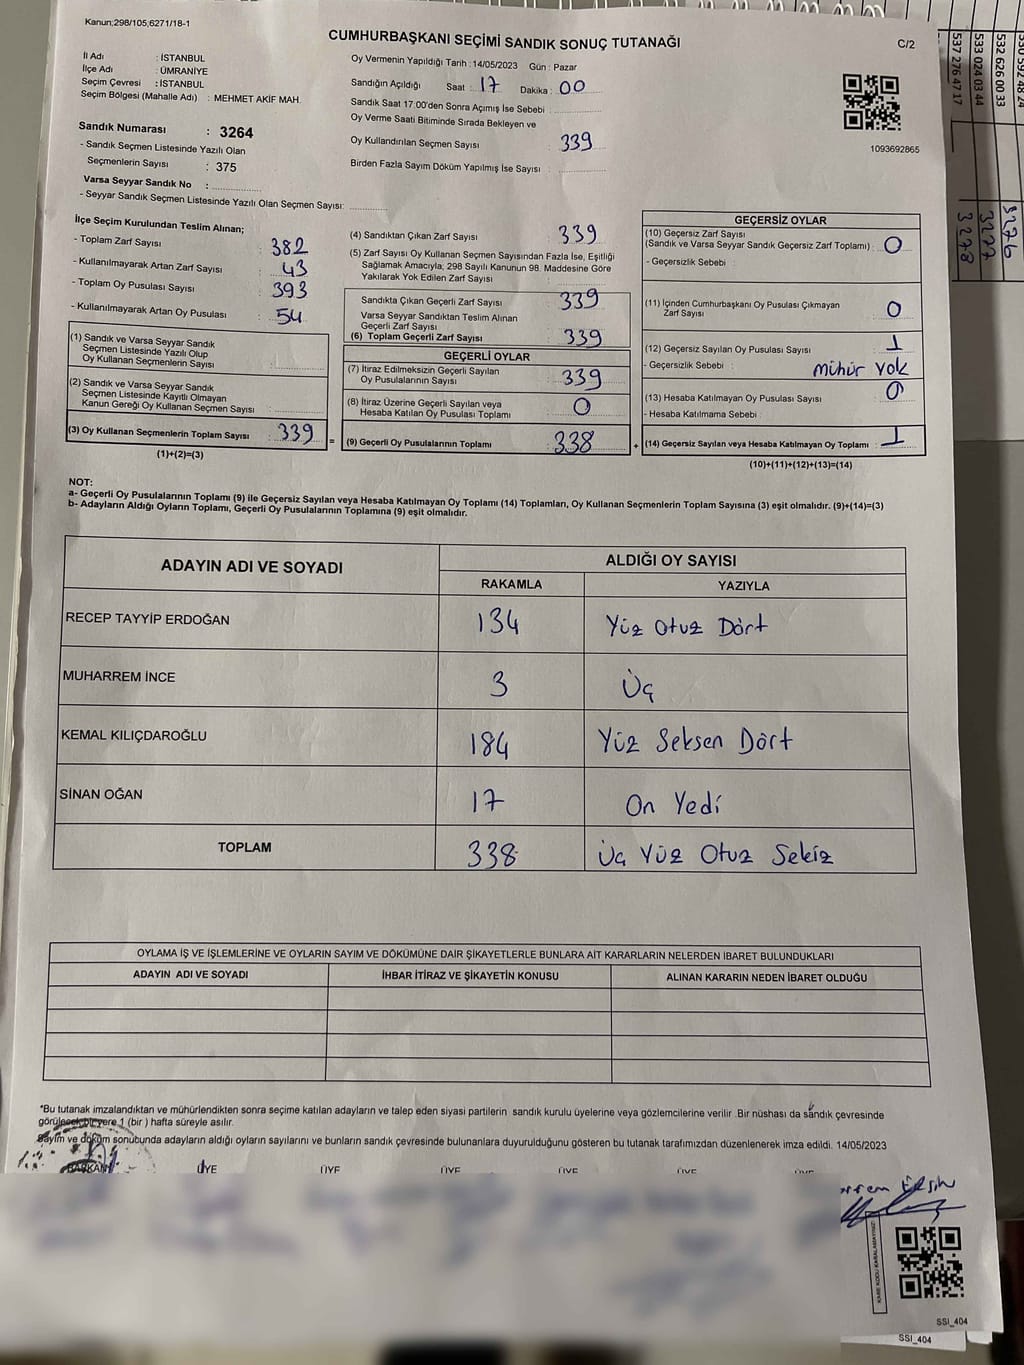 Kanun;298/105,6271/18-1
CUMHURBAŞKANI SEÇİMİ SANDIK SONUÇ TUTANAĞI
C/2
İl Adı : İSTANBUL
İlçe Adı : ÜMRANİYE
Seçim Çevresi : İSTANBUL
Seçim Bölgesi (Mahalle Adı) : MEHMET AKİF MAH.
Sandık Numarası : 3264
- Sandık Seçmen Listesinde Yazılı Olan
Seçmenlerin Sayısı : 375
Varsa Seyyar Sandık No :
- Seyyar Sandık Seçmen Listesinde Yazılı Olan Seçmen Sayısı:
Oy Vermenin Yapıldığı Tarih : 14/05/2023 Gün : Pazar
Sandığın Açıldığı Saat : 17 Dakika : 00
Sandık Saat 17:00'den Sonra Açımış İse Sebebi :
Oy Verme Saati Bitiminde Sırada Bekleyen ve
Oy Kullandırılan Seçmen Sayısı : 339
Birden Fazla Sayım Döküm Yapılmış İse Sayısı :
1093692865
İlçe Seçim Kurulundan Teslim Alınan;
- Toplam Zarf Sayısı : 382
- Kullanılmayarak Artan Zarf Sayısı : 43
- Toplam Oy Pusulası Sayısı : 393
- Kullanılmayarak Artan Oy Pusulası : 54
(1) Sandık ve Varsa Seyyar Sandık
Seçmen Listesinde Yazılı Olup
Oy Kullanan Seçmenlerin Sayısı :
(2) Sandık ve Varsa Seyyar Sandık
Seçmen Listesinde Kayıtlı Olmayan
Kanun Gereği Oy Kullanan Seçmen Sayısı :
(3) Oy Kullanan Seçmenlerin Toplam Sayısı : 339
(1)+(2)=(3)
=
(4) Sandıktan Çıkan Zarf Sayısı : 339
(5) Zarf Sayısı Oy Kullanan Seçmen Sayısından Fazla İse, Eşitliği
Sağlamak Amacıyla; 298 Sayılı Kanunun 98. Maddesine Göre
Yakılarak Yok Edilen Zarf Sayısı :
Sandıkta Çıkan Geçerli Zarf Sayısı : 339
Varsa Seyyar Sandıktan Teslim Alınan
Geçerli Zarf Sayısı :
(6) Toplam Geçerli Zarf Sayısı : 339
GEÇERLİ OYLAR
(7) İtiraz Edilmeksizin Geçerli Sayılan
Oy Pusulalarının Sayısı : 339
(8) İtiraz Üzerine Geçerli Sayılan veya
Hesaba Katılan Oy Pusulası Toplamı : 0
(9) Geçerli Oy Pusulalarının Toplamı : 338
+
GEÇERSİZ OYLAR
(10) Geçersiz Zarf Sayısı
(Sandık ve Varsa Seyyar Sandık Geçersiz Zarf Toplamı) : 0
- Geçersizlik Sebebi :
(11) İçinden Cumhurbaşkanı Oy Pusulası Çıkmayan
Zarf Sayısı : 0
(12) Geçersiz Sayılan Oy Pusulası Sayısı : 1
- Geçersizlik Sebebi : mühür yok
(13) Hesaba Katılmayan Oy Pusulası Sayısı : 0
- Hesaba Katılmama Sebebi :
(14) Geçersiz Sayılan veya Hesaba Katılmayan Oy Toplamı : 1
(10)+(11)+(12)+(13)=(14)
NOT:
a- Geçerli Oy Pusulalarının Toplamı (9) ile Geçersiz Sayılan veya Hesaba Katılmayan Oy Toplamı (14) Toplamları, Oy Kullanan Seçmenlerin Toplam Sayısına (3) eşit olmalıdır. (9)+(14)=(3)
b- Adayların Aldığı Oyların Toplamı, Geçerli Oy Pusulalarının Toplamına (9) eşit olmalıdır.
ADAYIN ADI VE SOYADI
ALDIĞI OY SAYISI
RAKAMLA YAZIYLA
RECEP TAYYİP ERDOĞAN 134 Yüz Otuz Dört
MUHARREM İNCE 3 Üç
KEMAL KILIÇDAROĞLU 184 Yüz Seksen Dört
SİNAN OĞAN 17 On Yedi
TOPLAM 338 Üç Yüz Otuz Sekiz
OYLAMA İŞ VE İŞLEMLERİNE VE OYLARIN SAYIM VE DÖKÜMÜNE DAİR ŞİKAYETLERLE BUNLARA AİT KARARLARIN NELERDEN İBARET BULUNDUKLARI
ADAYIN ADI VE SOYADI İHBAR İTİRAZ VE ŞİKAYETİN KONUSU ALINAN KARARIN NEDEN İBARET OLDUĞU
*Bu tutanak imzalandıktan ve mühürlendikten sonra seçime katılan adayların ve talep eden siyasi partilerin sandık kurulu üyelerine veya gözlemcilerine verilir .Bir nüshası da sandık çevresinde
görülecek bir yere 1 (bir ) hafta süreyle asılır.
Sayım ve döküm sonucunda adayların aldığı oyların sayılarını ve bunların sandık çevresinde bulunanlara duyurulduğunu gösteren bu tutanak tarafımızdan düzenlenerek imza edildi. 14/05/2023
BAŞKAN ÜYE ÜYE ÜYE ÜYE ÜYE ÜYE
SSI_404
SSI_404
532 626 00 33
533 024 03 44
537 276 47 17
3276
3277
3278